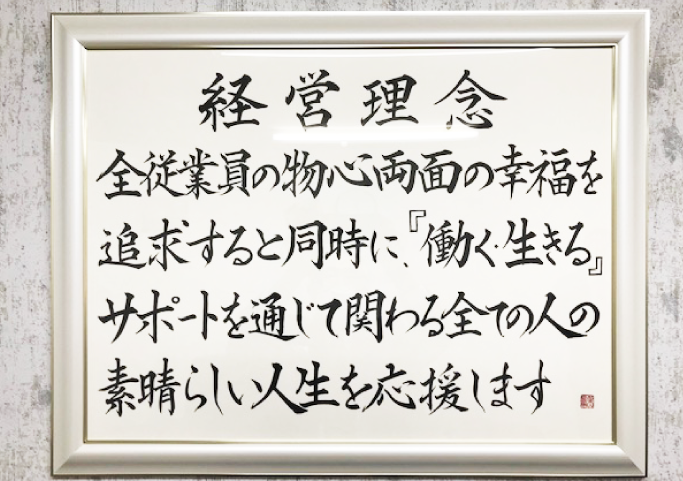 経営理念
全従業員の物心両面の幸福を
追求すると同時に、『働く・生きる』
サポートを通じて関わる全ての人の
素晴らしい人生を応援します